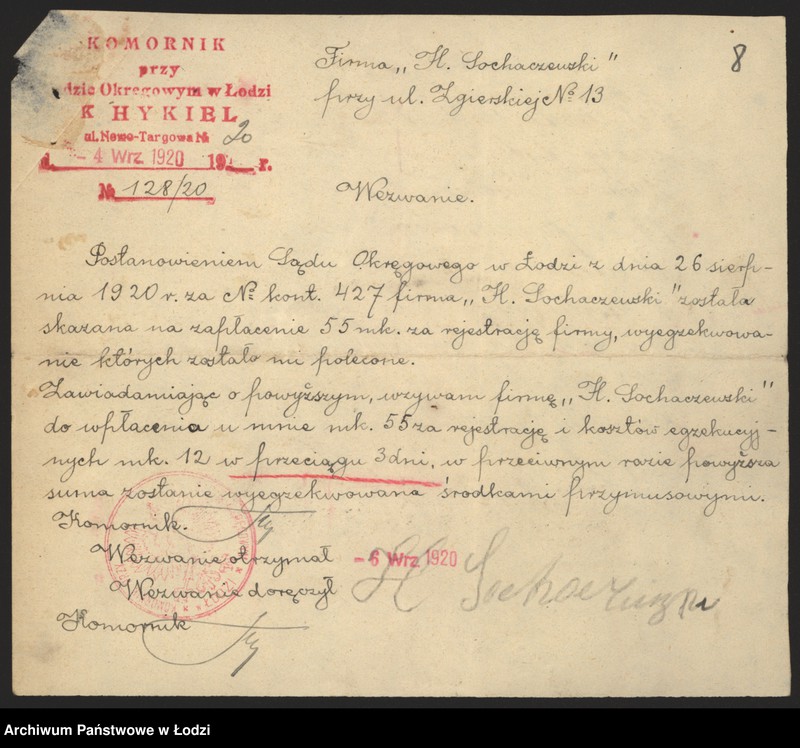 KOMORNIK
przy
dzie Okręgowym w Łodzi
K HYKIEL
ul. Nowo-Targowa № 20
- 4 Wrz. 1920 19 r.
№ 128/20
Firma „H. Sochaczewski"
przy ul. Zgierskiej № 13
8
Wezwanie.
Postanowieniem Sądu Okręgowego w Łodzi z dnia 26 sierp-
nia 1920 r. za № kont. 427 firma „H. Sochaczewski" została
skazana na zapłacenie 55 mk. za rejestrację firmy, wyegzekwowa-
nie których zostało mi polecone.
Zawiadamiając o powyższym, wzywam firmę „H. Sochaczewski"
do wpłacenia u mnie mk. 55 za rejestrację i kosztów egzekucyj-
nych mk. 12 w przeciągu 3 dni, w przeciwnym razie powyższa
suma zostanie wyegzekwowana środkami przymusowymi.
Komornik.
Wezwanie otrzymał - 6 Wrz. 1920 H Sochaczewski
Wezwanie doręczył
Komornik
Archiwum Państwowe w Łodzi